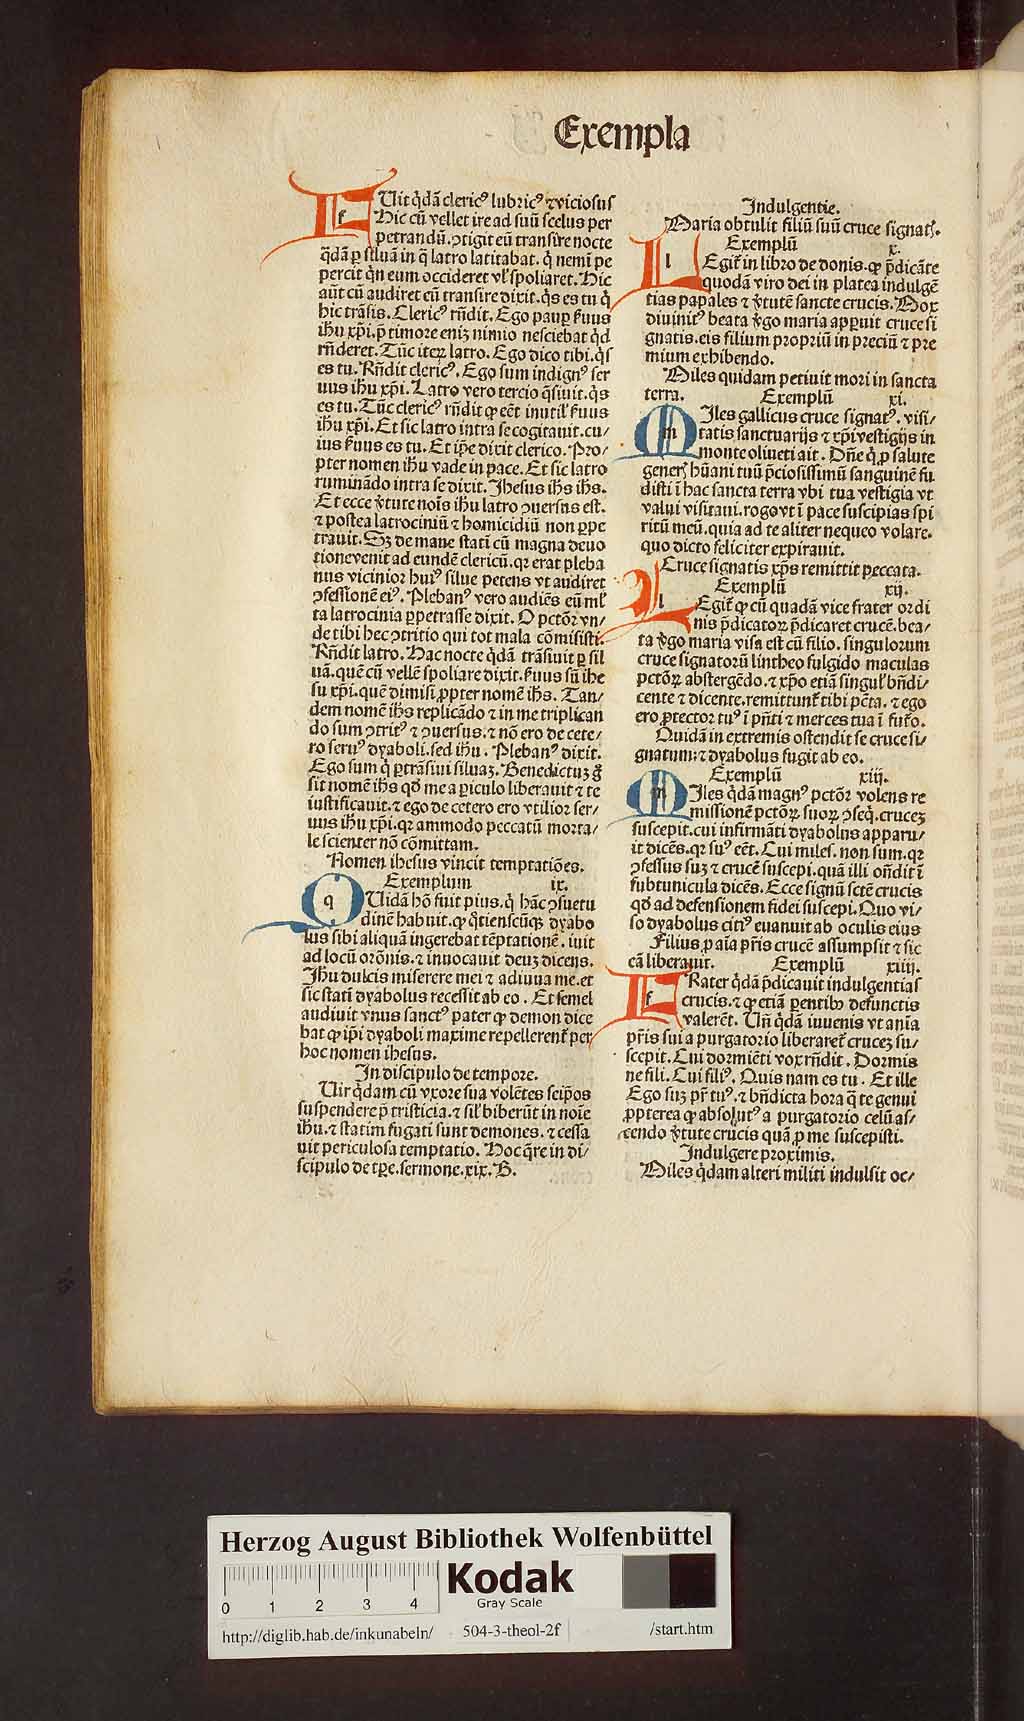 Exempla
FUit q̇dā clericꝰ lubricꝰ ⁊ viciosus
Hic cū vellet ire ad suū scelus per
petrandū. ↄtigit eū transire nocte
q̄dā ꝑ siluā in q̄ latro latitabat. q̇ nemī pe
percit q̇n eum occideret vl' spoliaret. Hic
aūt cū audiret cū transire dixit. q̇s es tu q̇
hic trāsis. Clericꝰ rn̄dit. Ego pauꝑ s̓uus
ihū xp̄i. p̄ timore eniꝫ nimio nesciebat qd̓
rn̄deret. Tūc iteꝝ latro. Ego dico tibi. q̇s
es tu. Rn̄dit clericꝰ. Ego sum indignꝰ ser
uus ihū xp̄i. Latro vero tercio q̄siuit. q̇s
es tu. Tūc clericꝰ rn̄dit ꝙ eēt inutil' s̓uus
ihū xp̄i. Et sic latro intra se cogitauit. cu/
ius s̓uus es tu. Et ip̄e dixit clerico. Pro/
pter nomen ihū vade in pace. Et sic latro
ruminādo intra se dixit. Jhesus ihs ihs.
Et ecce v̓tute noīs ihū latro ↄuersus est.
⁊ postea latrociniū ⁊ homicidiū non ꝑpe
trauit. Sꝫ de mane statī cū magna deuo
tione venit ad eundē clericū. qꝛ erat pleba
nus vicinior huiꝰ silue petens vt audiret
ↄfessionē eiꝰ. Plebanꝰ vero audiēs eū ml'
ta latrocinia ꝑpetrasse dixit. O pctōr vn/
de tibi hec ↄtritio qui tot mala cōmisisti.
Rn̄dit latro. Hac nocte q̇dā trāsiuit ꝑ sil
uā. quē cū vellē spoliare dixit. s̓uus sū ihe
su xp̄i. quē dimisi ꝓpter nomē ihs. Tan/
dem nomē ihs replicādo ⁊ in me triplican
do sum ↄtritꝰ ⁊ ↄuersus. ⁊ nō ero de cete/
ro seruꝰ dyaboli. sed ihū. Plebanꝰ dixit.
Ego sum q̇ ꝑtrāsiui siluaꝫ. Benedictuꝫ g̓
sit nomē ihs qd̓ me a ꝑiculo liberauit ⁊ te
iustificauit. ⁊ ego de cetero ero vtilior ser/
uus ihū xp̄i. qꝛ ammodo peccatū morta/
le scienter nō cōmittam.
Nomen ihesus vincit temptatiōes.
Exemplum ix.
QUidā hō fuit pius. q̇ hāc ↄsuetu
dinē habuit. ꝙ q̄tienscūqꝫ dyabo
lus sibi aliquā ingerebat tēptationē. iuit
ad locū orōnis. ⁊ inuocauit deuꝫ dicens.
Jhū dulcis miserere mei ⁊ adiuua me. et
sic statī dyabolus recessit ab eo. Et semel
audiuit vnus sanctꝰ pater ꝙ demon dice
bat ꝙ ip̄i dyaboli maxime repellerent̓ per
hoc nomen ihesus.
In discipulo de tempore.
Uir q̇dam cū vxore sua volētes seip̄os
suspendere p̄ tristicia. ⁊ sil' biberūt in noīe
ihū. ⁊ statim fugati sunt demones. ⁊ cessa
uit periculosa temptatio. Hoc q̄re in di/
scipulo de tꝑe. sermone. xix. B.
Indulgentie.
Maria obtulit filiū suū cruce signatꝭ.
Exemplū x.
LEgit̓ in libro de donis. ꝙ p̄dicāte
quodā viro dei in platea indulgē
tias papales ⁊ v̓tutē sancte crucis. Mox
diuinitꝰ beata v̓go maria appuit cruce si
gnatis. eis filium propriū in preciū ⁊ pre
mium exhibendo.
Miles quidam petiuit mori in sancta
terra. Exemplū xi.
MIles gallicus cruce signatꝰ. visi/
tatis sanctuarijs ⁊ xp̄i vestigijs in
monte oliueti ait. Dn̄e q̇ ꝓ salute
generꝭ hūani tuū p̄ciosissimū sanguinē fu
disti ī hac sancta terra vbi tua vestigia vt
valui visitaui. rogo vt ī pace suscipias spi
ritū meū. quia ad te aliter nequeo volare.
quo dicto feliciter expirauit.
Cruce signatis xp̄s remittit peccata.
Exemplū xij.
LEgit̓ ꝙ cū quadā vice frater ordi
nis p̄dicatoꝝ p̄dicaret crucē. bea/
ta v̓go maria visa est cū filio. singulorum
cruce signatorū lintheo fulgido maculas
pctōꝝ abstergēdo. ⁊ xp̄o etiā singul' bn̄di/
cente ⁊ dicente. remittunt̓ tibi pcta. ⁊ ego
ero ꝓtector tuꝰ ī pn̄ti ⁊ merces tua ī fut̓o.
Quidā in extremis ostendit se cruce si/
gnatum: ⁊ dyabolus fugit ab eo.
Exemplū xiij.
MIles q̇dā magnꝰ pctōr volens re
missionē pctōꝝ suoꝝ ↄseq̇. cruceꝫ
suscepit. cui infirmāti dyabolus apparu/
it dicēs. qꝛ suꝰ eēt. Cui miles. non sum. qꝛ
ↄfessus suꝫ ⁊ crucē suscepi. quā illi on̄dit ī
subtunicula dicēs. Ecce signū sctē crucis
qd̓ ad defensionem fidei suscepi. Quo vi/
so dyabolus citiꝰ euanuit ab oculis eius
Filius ꝓ aīa pr̄is crucē assumpsit ⁊ sic
eā liberauit. Exemplū xiiij.
FRater q̇dā p̄dicauit indulgentias
crucis. ⁊ ꝙ etiā ꝑ entibꝫ defunctis
valerēt. Un̄ q̇dā iuuenis vt anīa
pr̄is sui a purgatorio liberaret̓ cruceꝫ su/
scepit. Cui dormiēti vox rn̄dit. Dormis
ne fili. Cui filiꝰ. Quis nam es tu. Et ille
Ego suꝫ pr̄ tuꝰ. ⁊ bn̄dicta hora q̇ te genui
ꝓpterea ꝙ absolutꝰ a purgatorio celū as/
cendo v̓tute crucis quā ꝓ me suscepisti.
Indulgere proximis.
Miles q̇dam alteri militi indulsit oc/
Herzog August Bibliothek Wolfenbüttel
0 1 2 3 4
Kodak
Gray Scale
http://diglib.hab.de/inkunabeln/ 504-3-theol-2f /start.htm